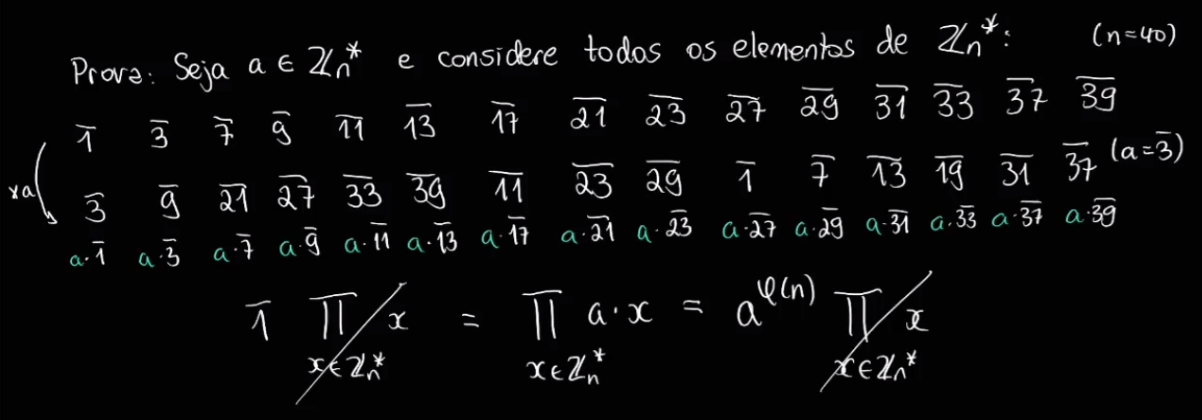 Prova: Seja a ∈ ℤn* e considere todos os elementos de ℤn*: (n=40)
1̅ 3̅ 7̅ 9̅ 1̅1̅ 1̅3̅ 1̅7̅ 2̅1̅ 2̅3̅ 2̅7̅ 2̅9̅ 3̅1̅ 3̅3̅ 3̅7̅ 3̅9̅
×a 3̅ 9̅ 2̅1̅ 2̅7̅ 3̅3̅ 3̅9̅ 1̅1̅ 2̅3̅ 2̅9̅ 1̅ 7̅ 1̅3̅ 1̅9̅ 3̅1̅ 3̅7̅ (a=3̅)
a·1̅ a·3̅ a·7̅ a·9̅ a·1̅1̅ a·1̅3̅ a·1̅7̅ a·2̅1̅ a·2̅3̅ a·2̅7̅ a·2̅9̅ a·3̅1̅ a·3̅3̅ a·3̅7̅ a·3̅9̅
1̅ ∏ x = ∏ a·x = a^φ(n) ∏ x
x∈ℤn* x∈ℤn* x∈ℤn*